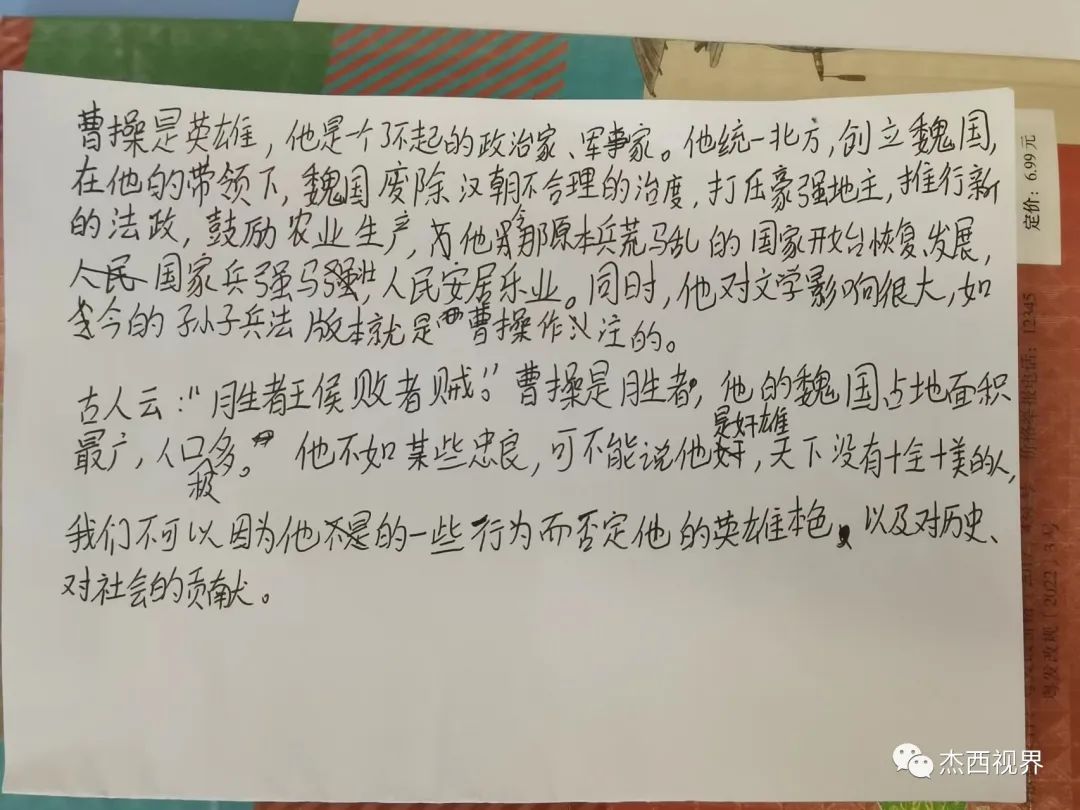 曹操是英雄，他是一个了不起的政治家、军事家。他统一北方，创立魏国，
在他的带领下，魏国废除汉朝不合理的治度，打压豪强地主，推行新
的法政，鼓励农业生产，令那原本兵荒马乱的国家开始恢复发展，
国家兵强马壮，人民安居乐业。同时，他对文学影响很大，如
今的孙子兵法版本就是曹操作注的。
古人云：“胜者王侯败者贼。”曹操是胜者，他的魏国占地面积
最广，人口极多。他不如某些忠良，可不能说他是奸雄，天下没有十全十美的人，
我们不可以因为他不是的一些行为而否定他的英雄本色，以及对历史、
对社会的贡献。
定价：6.99元
12345
粤发改规〔2022〕3号
杰西视界